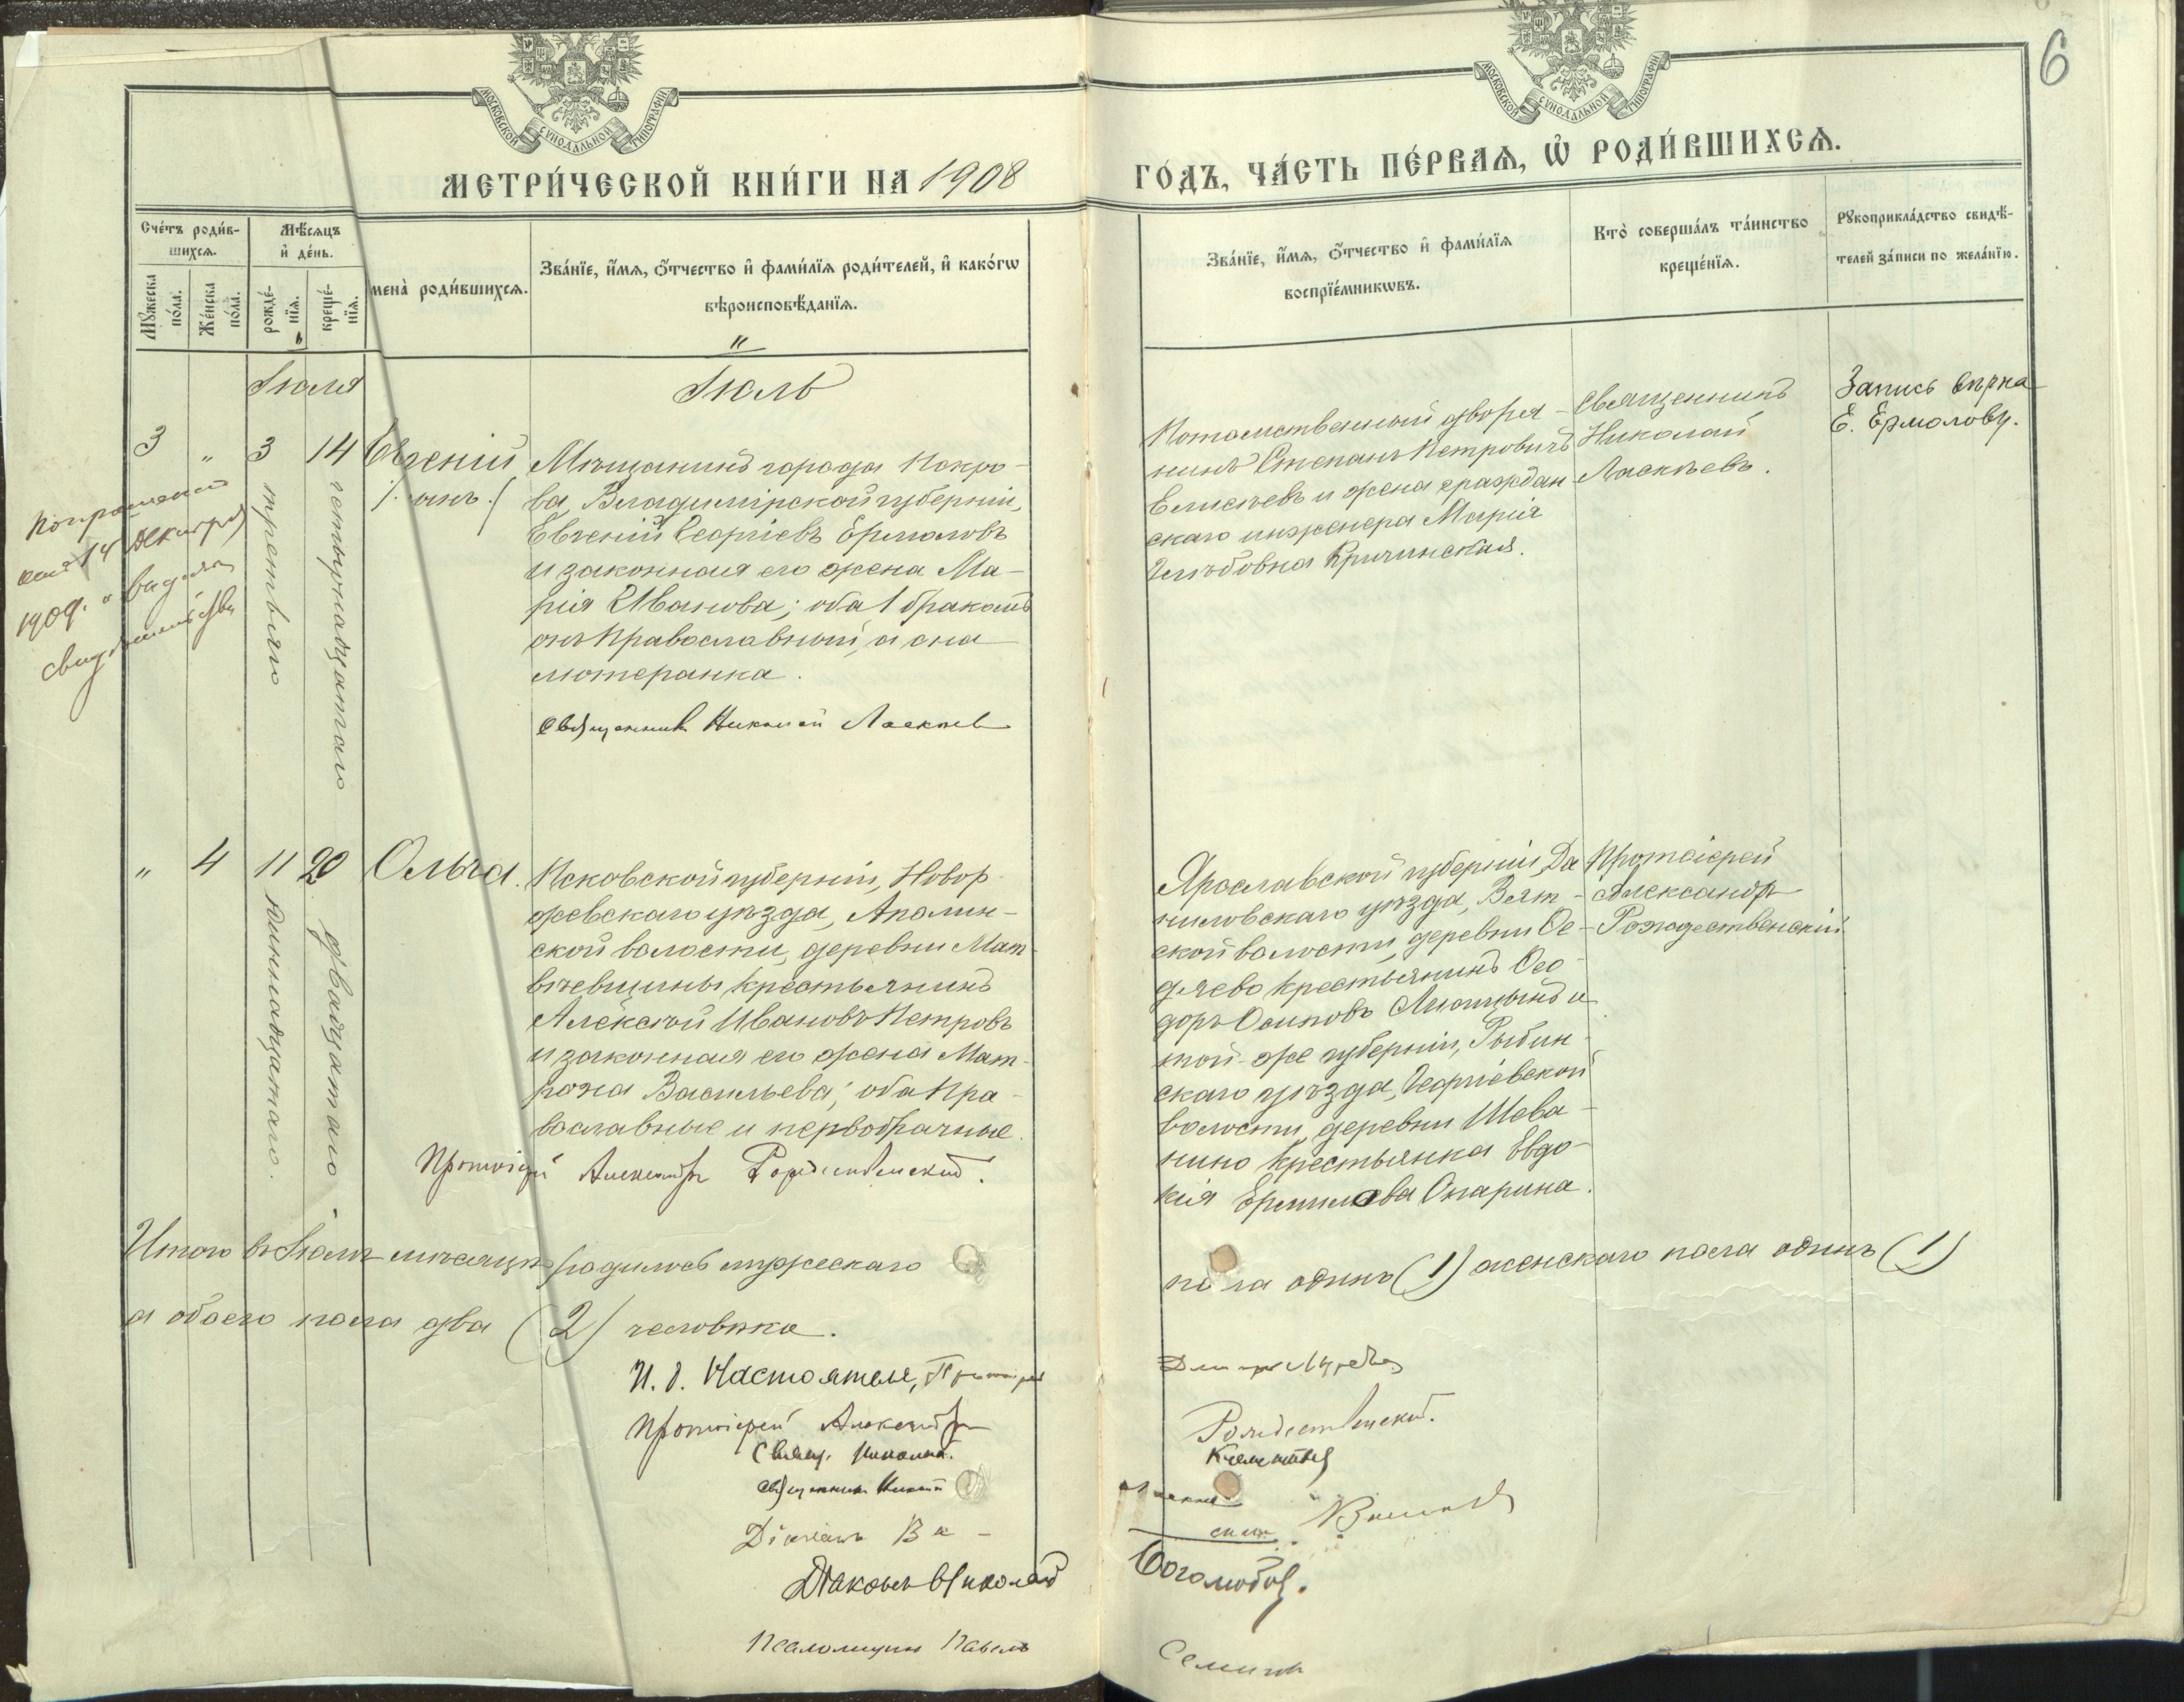 6
МОСКОВСКОЙ СѴНОДАЛЬНОЙ ТИПОГРАФІИ
МОСКОВСКОЙ СѴНОДАЛЬНОЙ ТИПОГРАФІИ
МЕТРИ́ЧЕСКОЙ КНИ́ГИ НА 1908
ГО́ДЪ, ЧА́СТЬ ПЕ́РВАѦ, Ѡ҆ РОДИ́ВШИХСѦ.
Сче́тъ роди́в-
шихсѧ.
Мꙋ́жеска
по́ла.
Же́нска
по́ла.
Мѣ́сѧцъ
и҆ де́нь.
рожде́-
нїѧ.
креще́-
нїѧ.
мена̀ роди́вшихсѧ.
Зва́нїе, и҆́мѧ, ѻ҆́тчество и҆ фами́лїѧ роди́телей, и҆ како́гѡ
вѣроисповѣ́данїѧ.
Зва́нїе, и҆́мѧ, ѻ҆́тчество и҆ фами́лїѧ
воспрїе́мникѡвъ.
Кто̀ соверша́лъ та́инство
креще́нїѧ.
Рꙋкоприкла́дство свидѣ́-
телей за́писи по жела́нїю.
Іюля
Іюль
3 " 3 14
третьяго
четырнадцатаго
Евгеній
Мѣщанинъ города Покро-
ва, Владимірской губерніи,
Евгеній Георгіевъ Ермоловъ
и законная его жена Ма-
рія Иванова; оба 1 бракомъ
онъ православный, а она
лютеранка.
Священникъ Николай Ласкѣевъ
14 декабря
1909.
свидѣтельство
Потомственный дворя-
нинъ Степанъ Петровичъ
Елисѣевъ и жена граждан-
скаго инженера Марія
Глѣбовна Кричинская.
Священникъ
Николай
Ласкѣевъ.
Запись вѣрна
Е. Ермоловъ.
" 4 11 20
одиннадцатаго.
двадцатаго.
Ольга.
Псковской губерніи, Новор-
жевскаго уѣзда, Аполин-
ской волости, деревни Мат-
вѣевщины крестьянинъ
Алексѣй Ивановъ Петровъ
и законная его жена Мат-
рона Васильева; оба пра-
вославные и первобрачные.
Протоіерей Александръ Рождественскій.
Ярославской губерніи, Да-
ниловскаго уѣзда, Вят-
ской волости, деревни Ѳе-
дяево крестьянинъ Ѳео-
доръ Осиповъ и
той-же губерніи, Рыбин-
скаго уѣзда, Георгіевской
волости, деревни Шева-
нино крестьянка Евдо-
кія Ермилова Опарина.
Протоіерей
Александръ
Рождественскій
Итого въ Іюлѣ мѣсяцѣ родилось мужескаго
пола одинъ (1) женскаго пола одинъ (1)
а обоего пола два (2) человѣка.
И. д. Настоятеля, Протоіерей
Протоіерей Александръ Рождественскій.
Свящ. Николай
Священникъ Николай Ласкѣевъ
Діаконъ
Діаконъ Николай Боголюбовъ.
Псаломщикъ Павелъ Семинъ